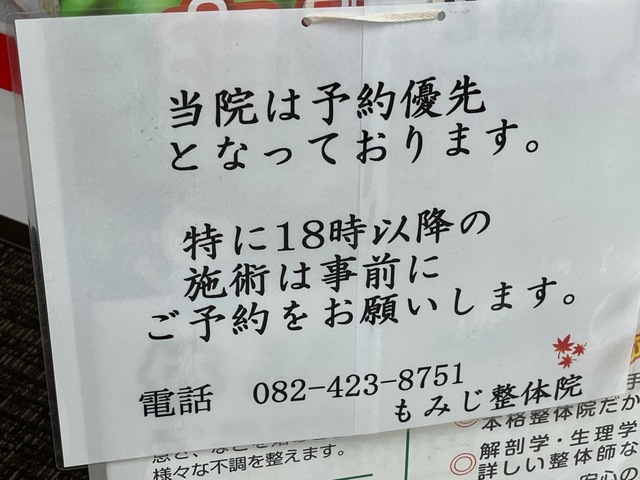 当院は予約優先
となっております。
特に18時以降の
施術は事前に
ご予約をお願いします。
電話 082-423-8751
もみじ整体院
様々な不調を整えます。
本格整体院だか
◎解剖学・生理学
詳しい整体師な